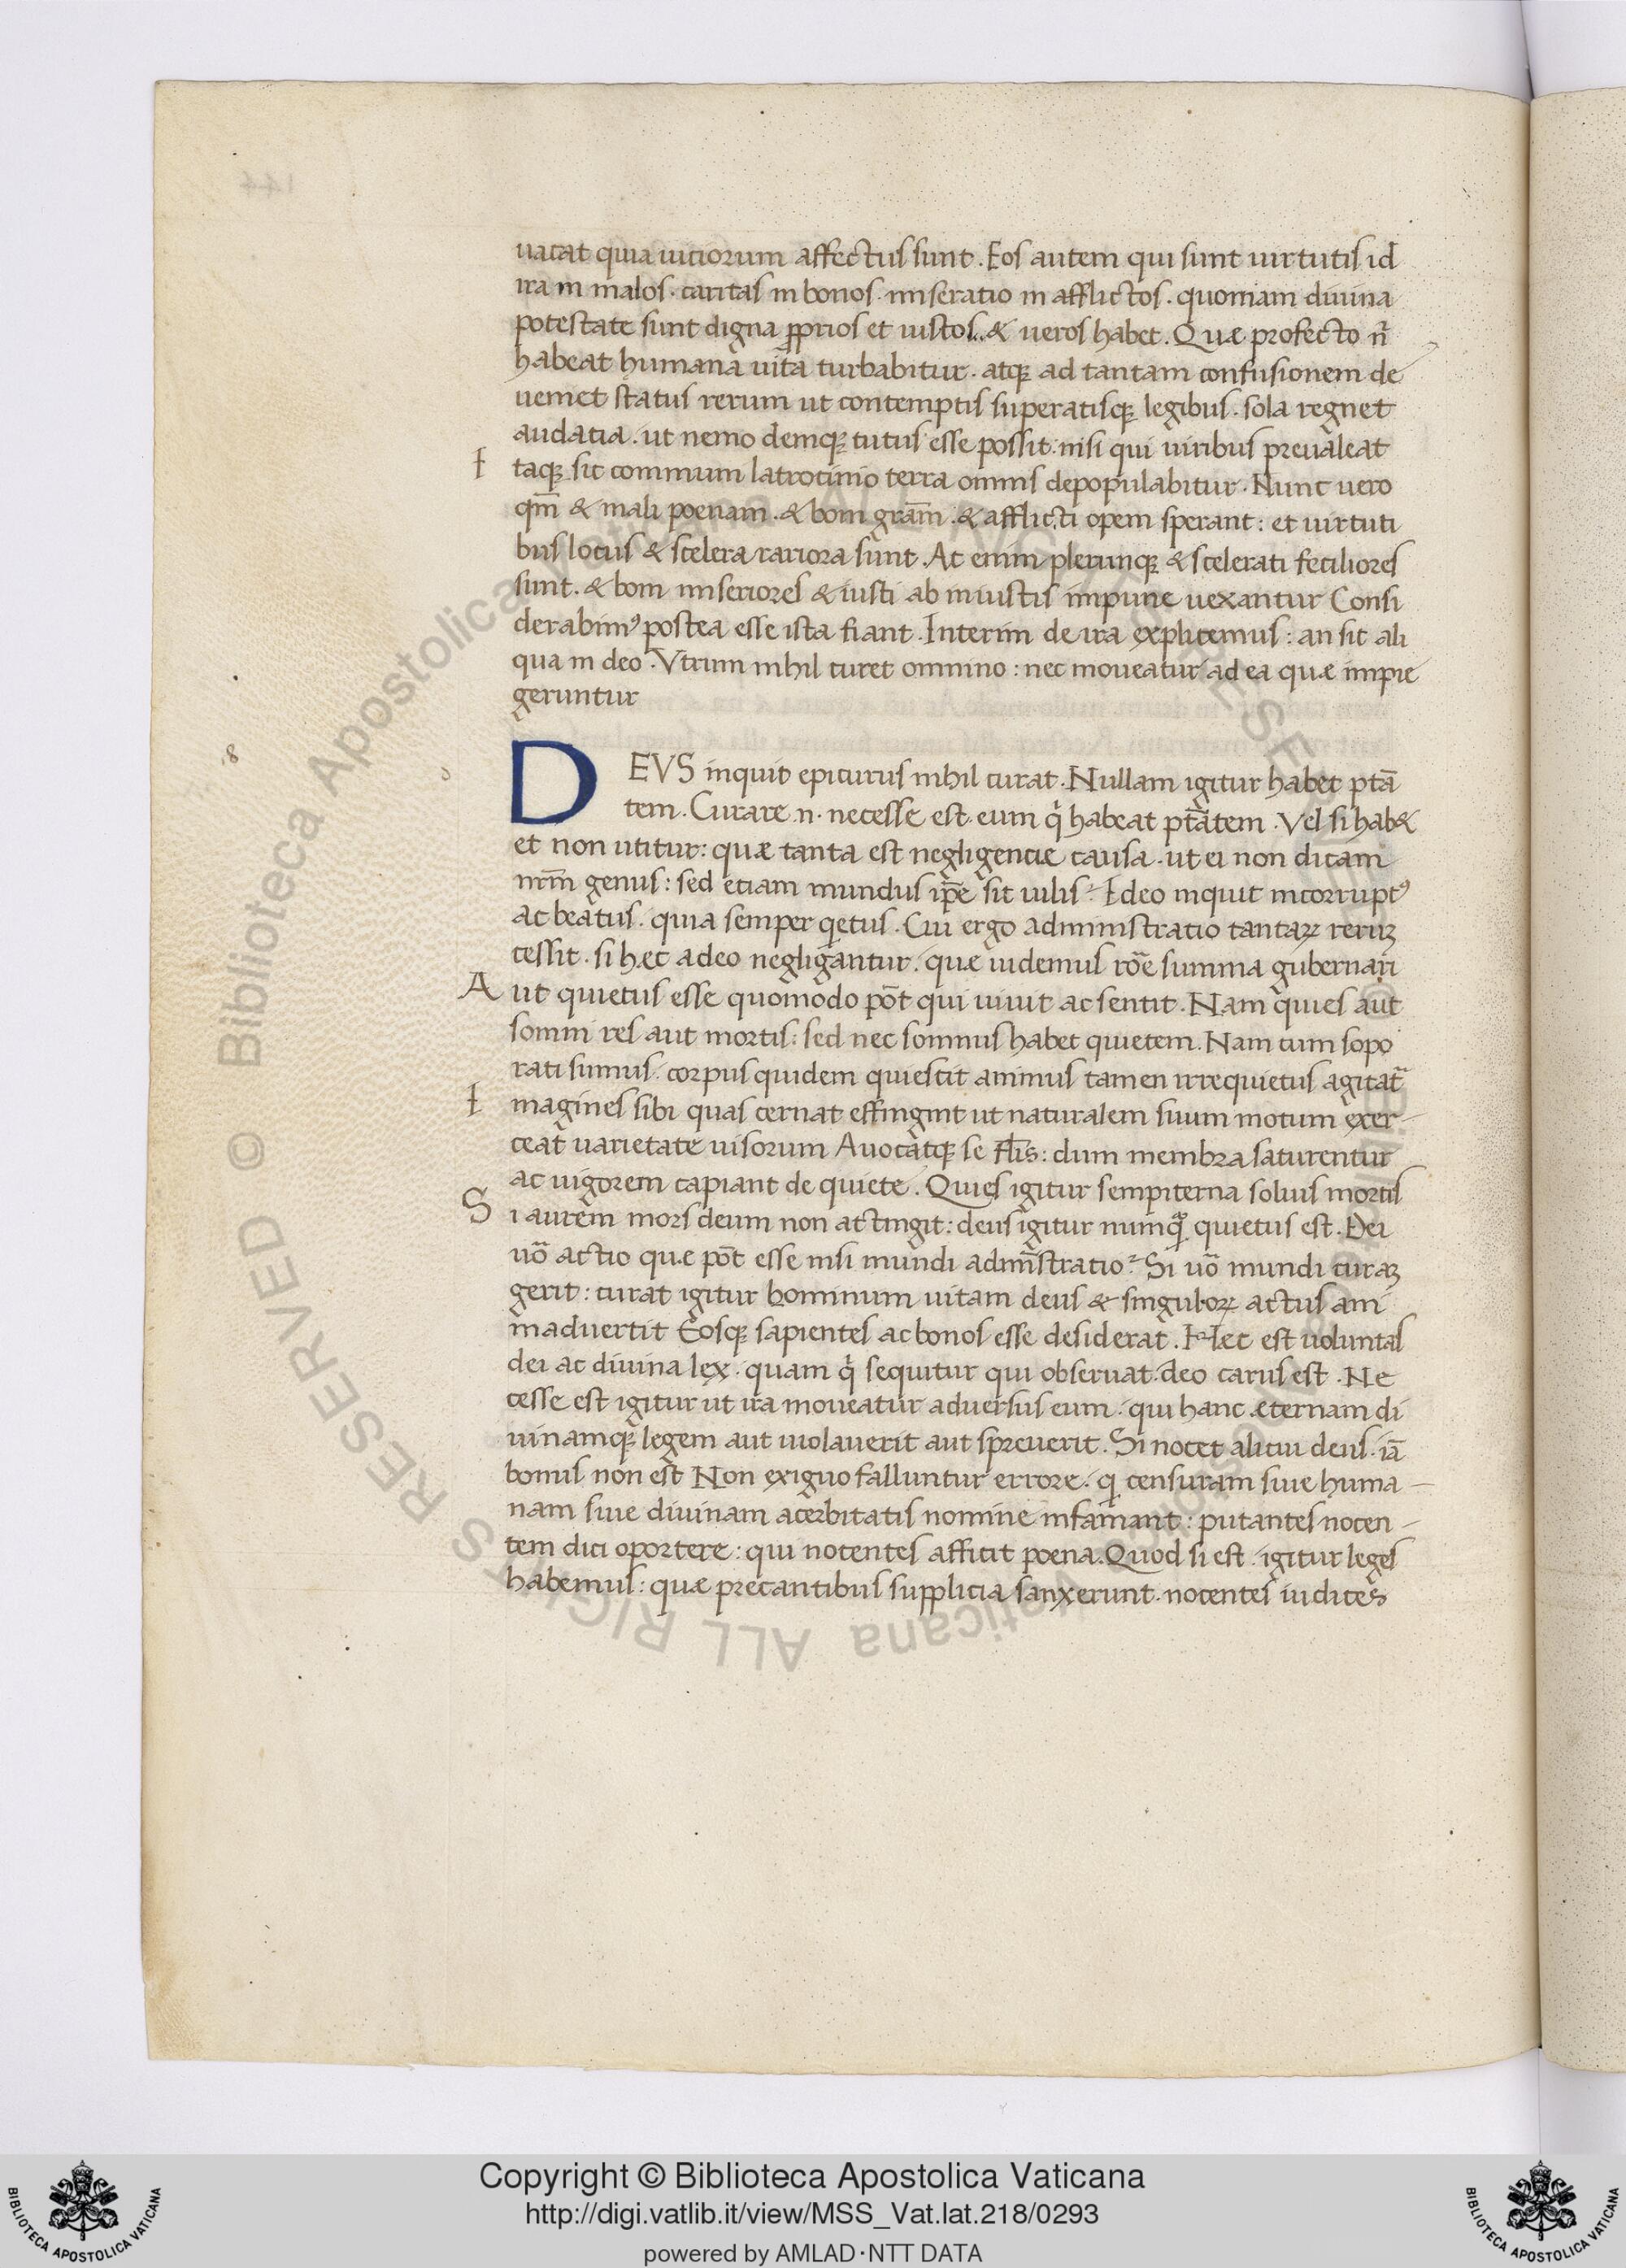 uacat quia uiciorum affectus sunt. Eos autem qui sunt uirtutis id
ira in malos. caritas in bonos. miseratio in afflictos. quoniam diuina
potestate sunt digna p̱prios et iustos & ueros habet. Quæ profecto ñ
habeat humana uita turbabitur. atq; ad tantam confusionem de
ueniet status rerum ut contemptis superatisq; legibus. sola regnet
audacia. ut nemo deniq; tutus esse possit. nisi qui uiribus preualeat
I taq; sic communi latrocinio terra omnis depopulabitur. Nunc uero
qm̄ & mali poenam. & boni grām. & afflicti opem sperant: et uirtuti
bus locus & scelera rariora sunt. At enim plerunq; & scelerati feciliores
sunt. & boni miseriores & iusti ab iniustis impune uexantur Consi
derabim' postea esse ista fiant. Interim de ira explicemus: an sit ali
qua in deo. Vtrum nihil curet omnino: nec moueatur ad ea quæ impie
geruntur
8
DEVS inquit epicurus nihil curat. Nullam igitur habet ptā
tem. Curare .n. necesse est eum q̇ habeat ptātem. Vel si hab&
et non utitur: quæ tanta est negligencie causa. ut ei non dicam
nr̄m genus: sed etiam mundus ip̄e sit uilis? Ideo inquit incorrupt'
ac beatus. quia semper qietus. Cui ergo administratio tantaꝝ reruꝫ
cessit. si hæc adeo negligantur. quæ uidemus rōe summa gubernari
A ut quietus esse quomodo pōt qui uiuit ac sentit. Nam quies aut
somni res aut mortis: sed nec somnus habet quietem. Nam cum sopo
rati sumus. corpus quidem quiescit animus tamen irrequietus agitat̄
I magines sibi quas cernat effingint ut naturalem suum motum exer-
ceat uarietate uisorum Auocatq; se fl̄is: dum membra saturentur
ac uigorem capiant de quiete. Quies igitur sempiterna solius mortis
S i aurem mors deum non attingit: deus igitur numqꝫ quietus est. Dei
uō actio quæ pōt esse nisi mundi admn̄stratio? Si uō mundi curaꝫ
gerit: curat igitur hominum uitam deus & singuloꝝ actus ani
maduertit Eosq; sapientes ac bonos esse desiderat. Hæc est uoluntas
dei ac diuina lex. quam q̇ sequitur qui obseruat. deo carus est. Ne
cesse est igitur ut ira moueatur aduersus eum. qui hanc æternam di
uinamq; legem aut uiolauerit aut spreuerit. Si nocet alicui deus. iā
bonus non est Non exiguo falluntur errore. qi censuram siue huma-
nam siue diuinam acerbitatis nomine infamant: putantes nocen-
tem dici oportere: qui nocentes afficit poena. Quod si est. igitur leges
habemus: quæ precantibus supplicia sanxerunt. nocentes iudices
Biblioteca Apostolica Vaticana ALL RIGHTS RESERVED ©
Copyright © Biblioteca Apostolica Vaticana
http://digi.vatlib.it/view/MSS_Vat.lat.218/0293
powered by AMLAD·NTT DATA
BIBLIOTECA APOSTOLICA VATICANA
BIBLIOTECA APOSTOLICA VATICANA